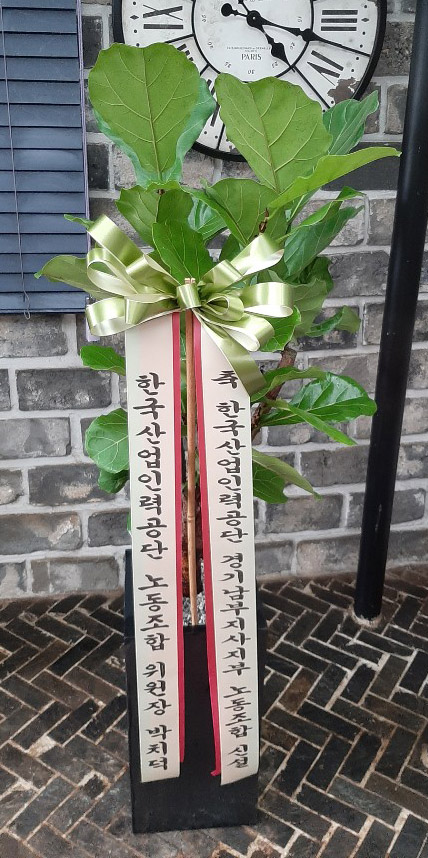 PARIS
축 한국산업인력공단 경기남부지사지부 노동조합 신설
한국산업인력공단 노동조합 위원장 박치덕